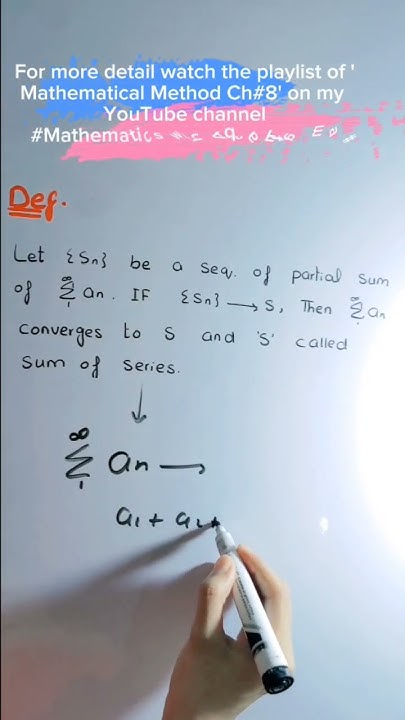 For more detail watch the playlist of '
Mathematical Method Ch#8' on my
YouTube channel
#Mathematics
Def.
Let {Sn} be a seq. of partial sum
of ∞ Σ 1 an. IF {Sn} → S, Then ∞ Σ 1 an
converges to S and 'S' called
Sum of series.
∞
Σ an →
1
a1 + a2 +